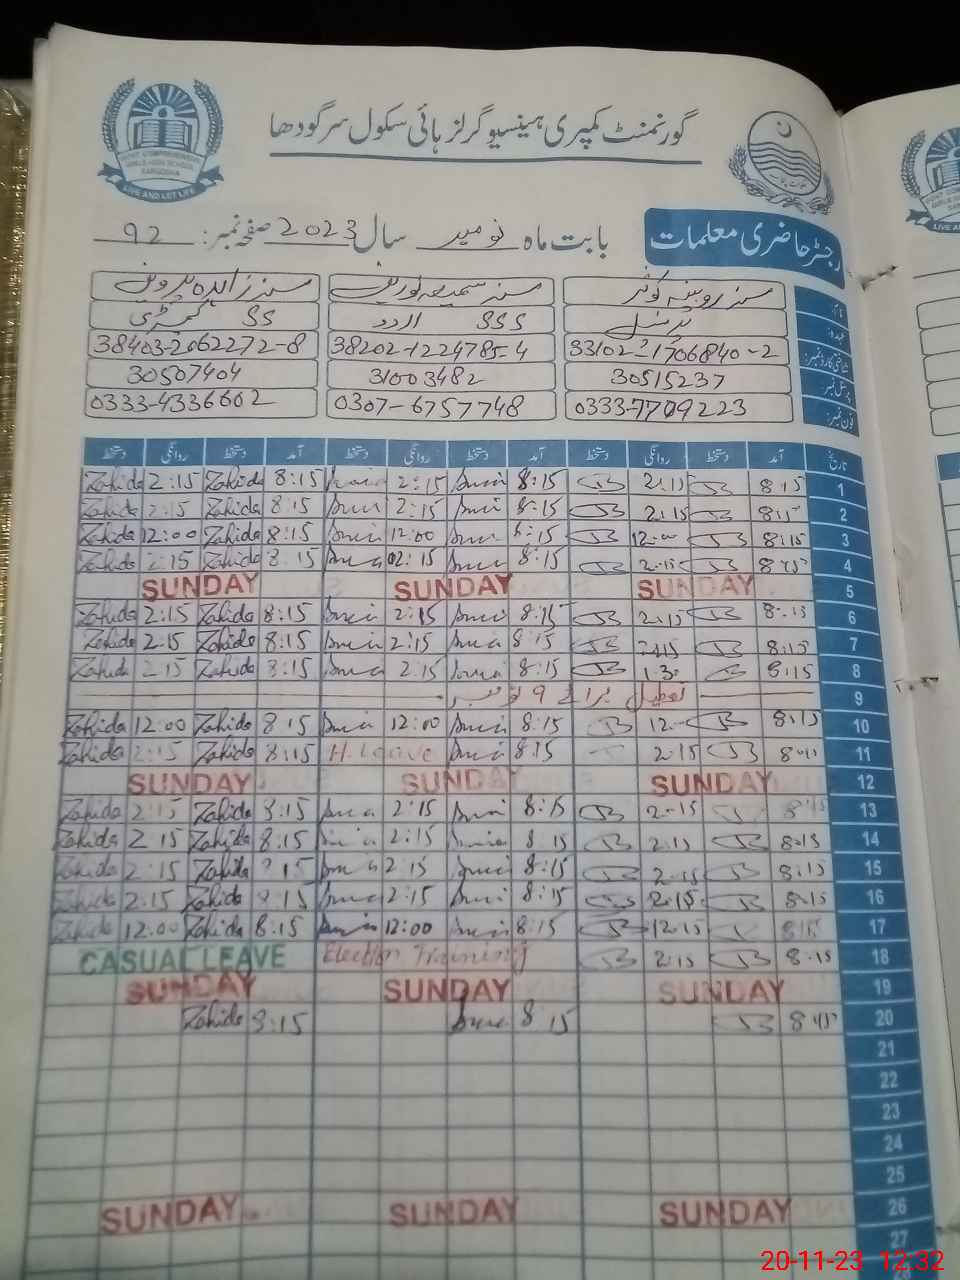 گورنمنٹ کمپری ہینسیو گرلز ہائی سکول سرگودھا
GOVT. COMPREHENSIVE GIRLS HIGH SCHOOL SARGODHA
LIVE AND LET LIFE
رجسٹر حاضری معلمات بابت ماہ نومبر سال 2023 صفحہ نمبر: 92
نام: مسز روبینہ کوثر مسز سمیعہ نورین مسز زاہدہ پروین
عہدہ: پرنسپل SSS اردو SS کیمسٹری
شناختی کارڈ نمبر: 33102-1706840-2 38202-1224785-4 38403-2062272-8
پرسنل نمبر: 30515237 31003482 30507404
فون نمبر: 0333-7709223 0307-6757748 0333-4336602
تاریخ آمد دستخط روانگی دستخط آمد دستخط روانگی دستخط آمد دستخط روانگی دستخط
1 8:15 2:15 8:15 2:15 8:15 Zahida 2:15 Zahida
2 8:15 2:15 8:15 2:15 8:15 Zahida 2:15 Zahida
3 8:15 12:00 8:15 12:00 8:15 Zahida 12:00 Zahida
4 8:15 2:15 8:15 02:15 8:15 Zahida 2:15 Zahida
5 SUNDAY SUNDAY SUNDAY
6 8:15 2:15 8:15 2:15 8:15 Zahida 2:15 Zahida
7 8:15 2:15 8:15 2:15 8:15 Zahida 2:15 Zahida
8 8:15 1:30 8:15 2:15 8:15 Zahida 2:15 Zahida
9 تعطیل برائے 9 نومبر
10 8:15 12:00 8:15 12:00 8:15 Zahida 12:00 Zahida
11 8:15 2:15 8:15 H. Leave 8:15 Zahida 2:15 Zahida
12 SUNDAY SUNDAY SUNDAY
13 8:15 2:15 8:15 2:15 8:15 Zahida 2:15 Zahida
14 8:15 2:15 8:15 2:15 8:15 Zahida 2:15 Zahida
15 8:15 2:15 8:15 2:15 8:15 Zahida 2:15 Zahida
16 8:15 2:15 8:15 2:15 8:15 Zahida 2:15 Zahida
17 8:15 12:15 8:15 12:00 8:15 Zahida 12:00 Zahida
18 8:15 2:15 Election Training CASUAL LEAVE
19 SUNDAY SUNDAY SUNDAY
20 8:15 8:15 8:15 Zahida
21
22
23
24
25
26 SUNDAY SUNDAY SUNDAY
27
20-11-23 12:32